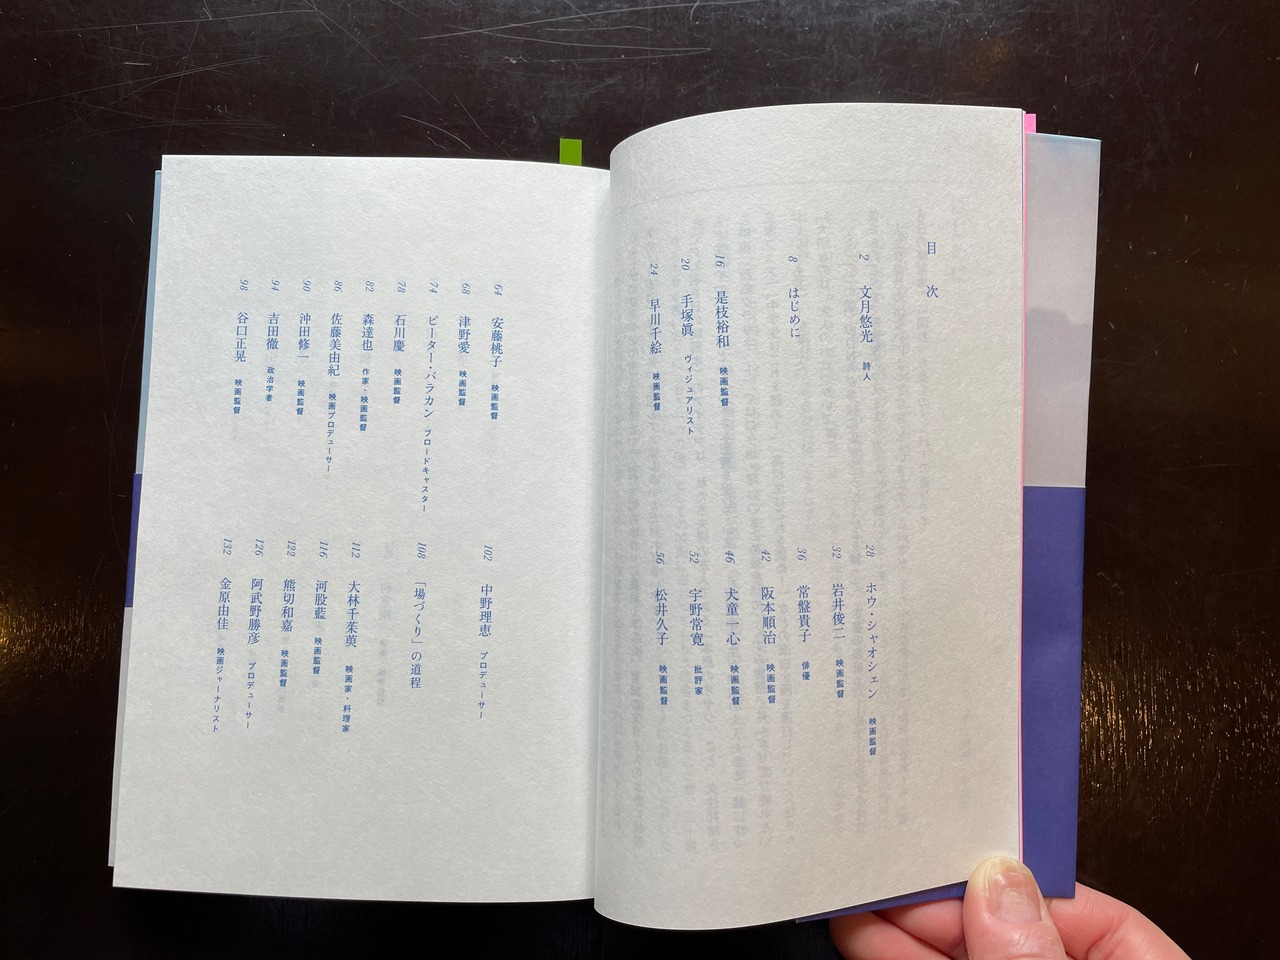 目次
2 文月悠光 詩人
8 はじめに
16 是枝裕和 映画監督
20 手塚眞 ヴィジュアリスト
24 早川千絵 映画監督
28 ホウ・シャオシェン 映画監督
32 岩井俊二 映画監督
36 常盤貴子 俳優
42 阪本順治 映画監督
46 犬童一心 映画監督
52 宇野常寛 批評家
56 松井久子 映画監督
64 安藤桃子 映画監督
68 津野愛 映画監督
74 ピーター・バラカン ブロードキャスター
78 石川慶 映画監督
82 森達也 作家・映画監督
86 佐藤美由紀 映画プロデューサー
90 沖田修一 映画監督
94 吉田徹 政治学者
98 谷口正晃 映画監督
102 中野理恵 プロデューサー
108 「場づくり」の道程
112 大林千茱萸 映画家・料理家
116 河股藍 映画監督
122 熊切和嘉 映画監督
126 阿武野勝彦 プロデューサー
132 金原由佳 映画ジャーナリスト